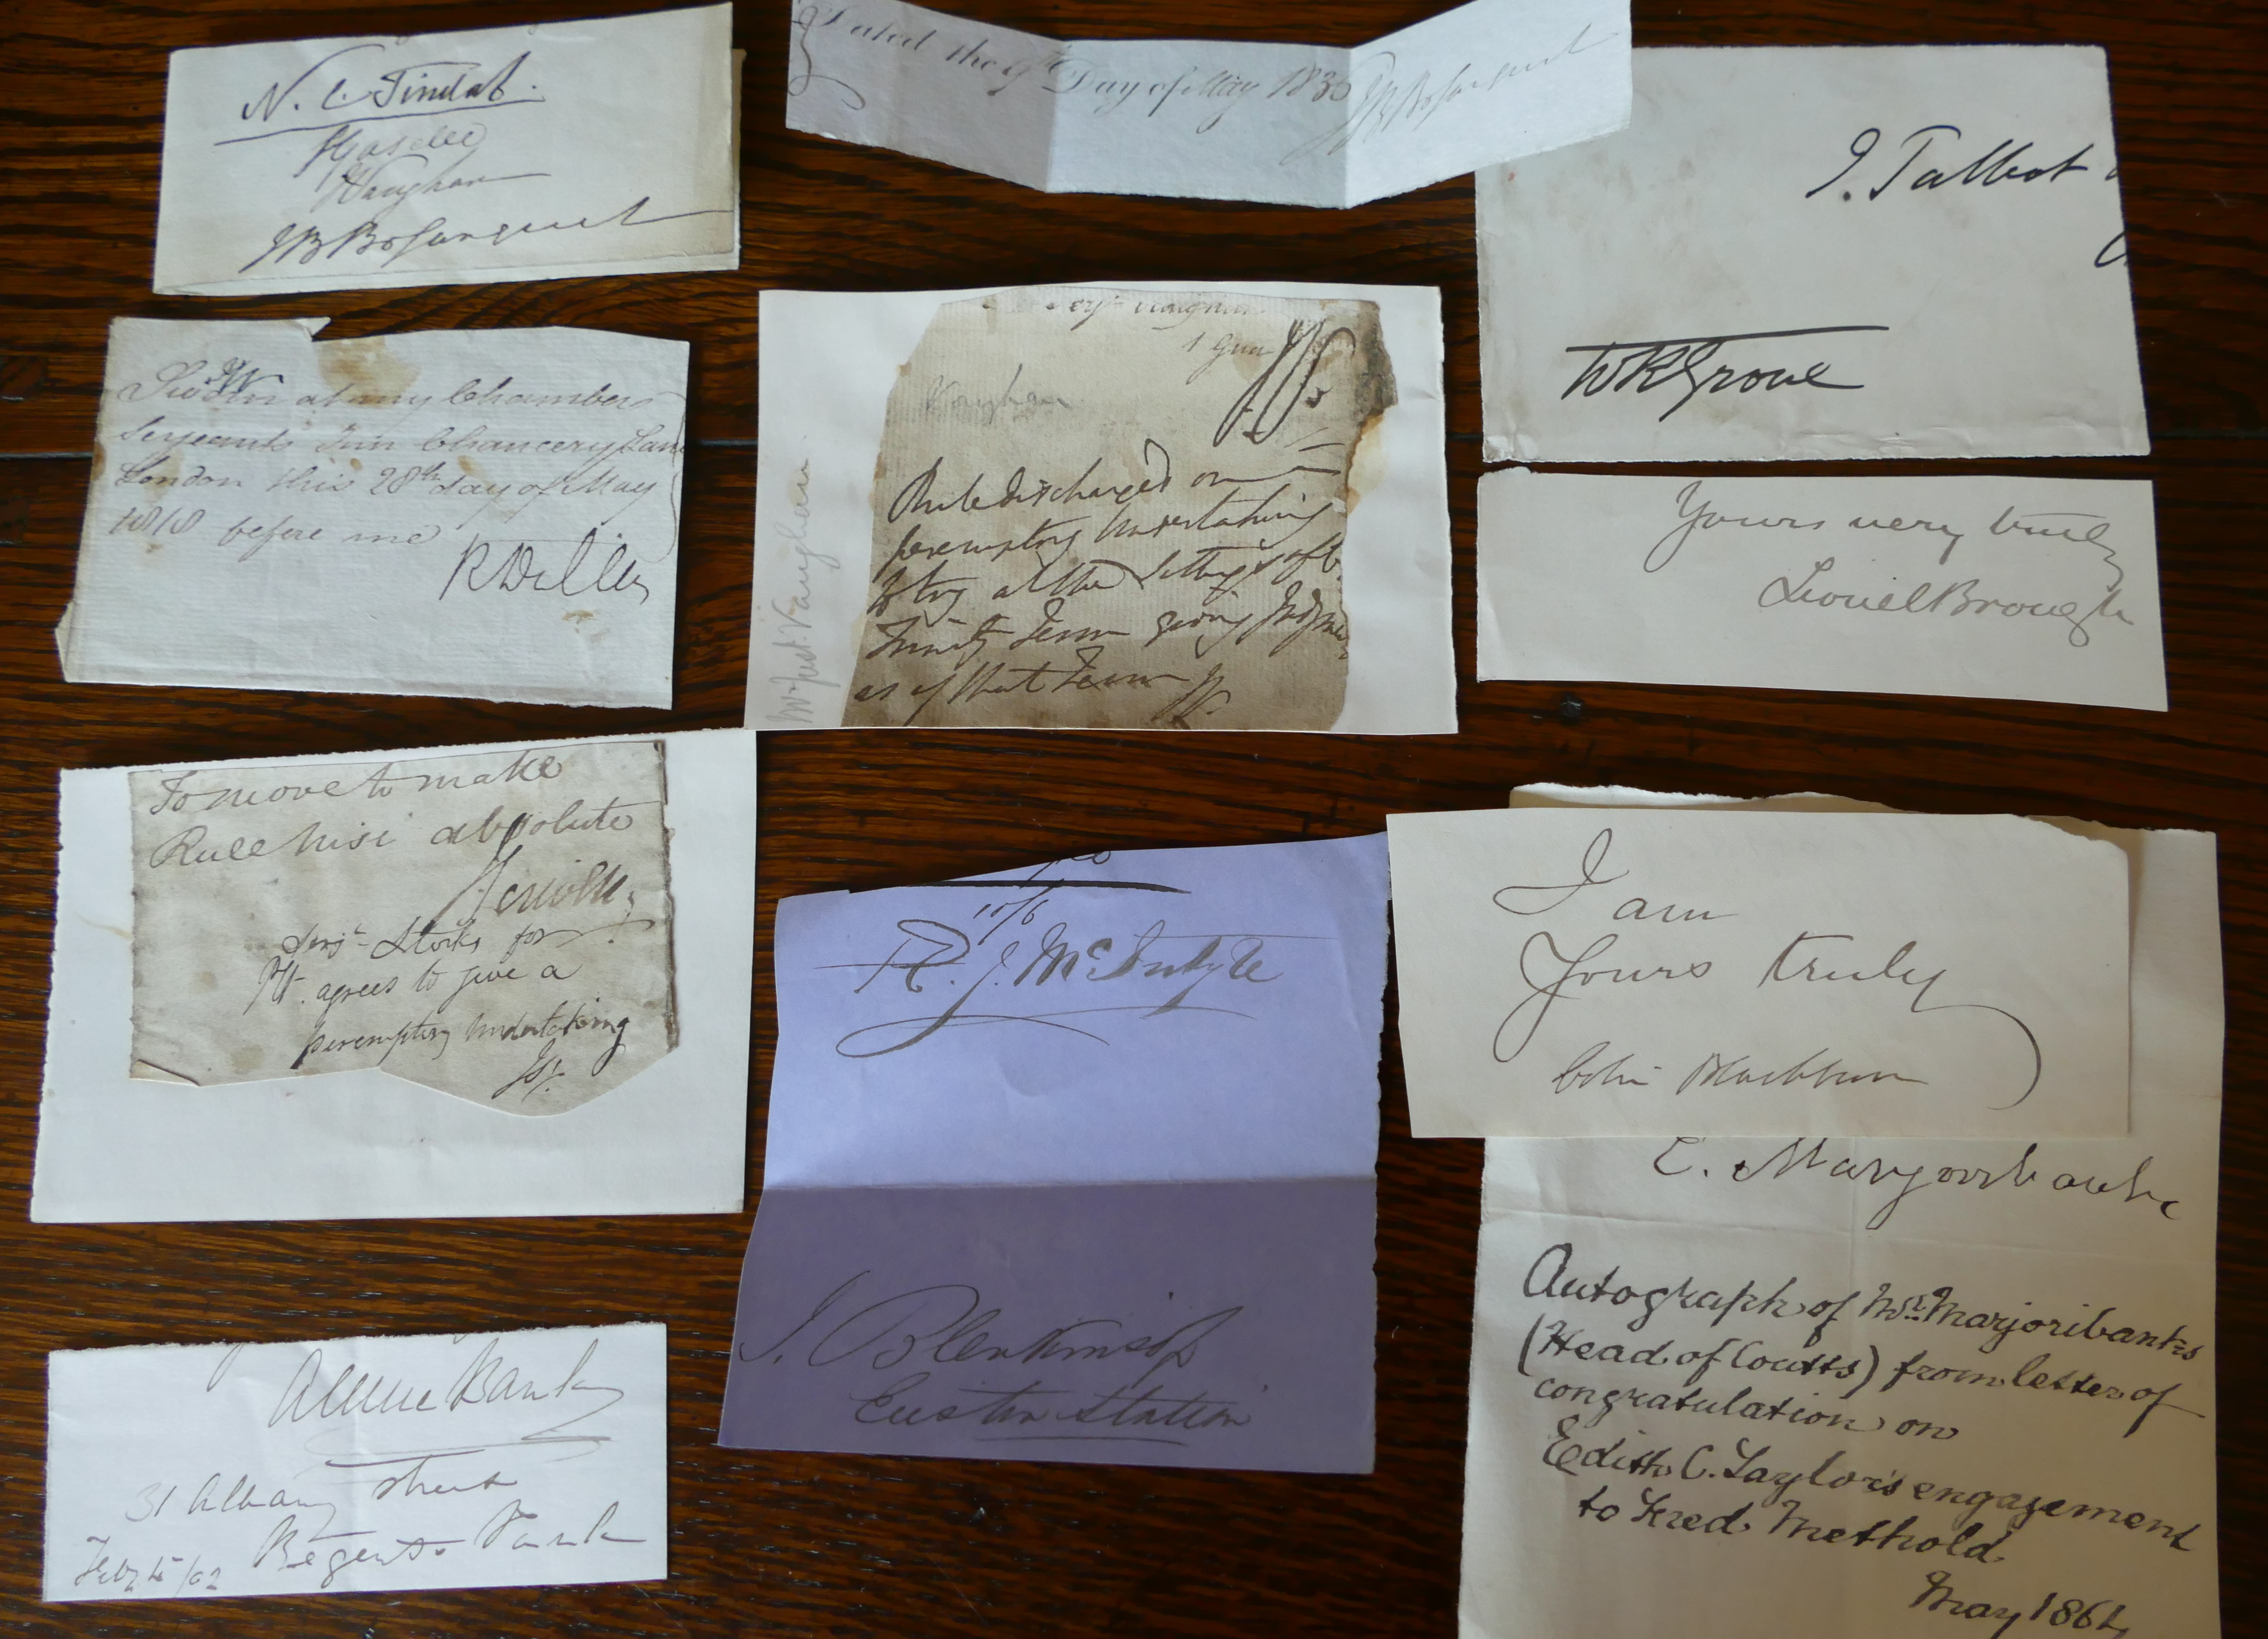 N. C. Tindal.
J Gaselee
J Vaughan
J B Bosanquet
Dated the 9th Day of May 1835
J B Bosanquet
J. Talbot
W R Grove
Sworn at my Chambers
Serjeants Inn Chancery Lane
London this 28th day of May
1818 before me
R Dallas
Serjt Vaughan
1 Gua
Vaughan
Rule discharged on
peremptory undertaking
to try at the Sittings aft
Trinity Term giving Judgment
as of that Term
Mr Just. Vaughan
Yours very truly
Lionel Brough
To move to make
Rule Nisi absolute
Serjt Storks for
Plt. agrees to give a
peremptory undertaking
10/6
R. J. McIntyre
J. Blenkinsop
Euston Station
I am
Yours truly
Colin Blackburn
E. Marjoribanks
Autograph of Mr. Marjoribanks
(Head of Coutts) from letter of
congratulation on
Edith C. Taylor's engagement
to Fred Methold
May 1864
Banks
31 Albany Street
Regents Park
Feby 15/02